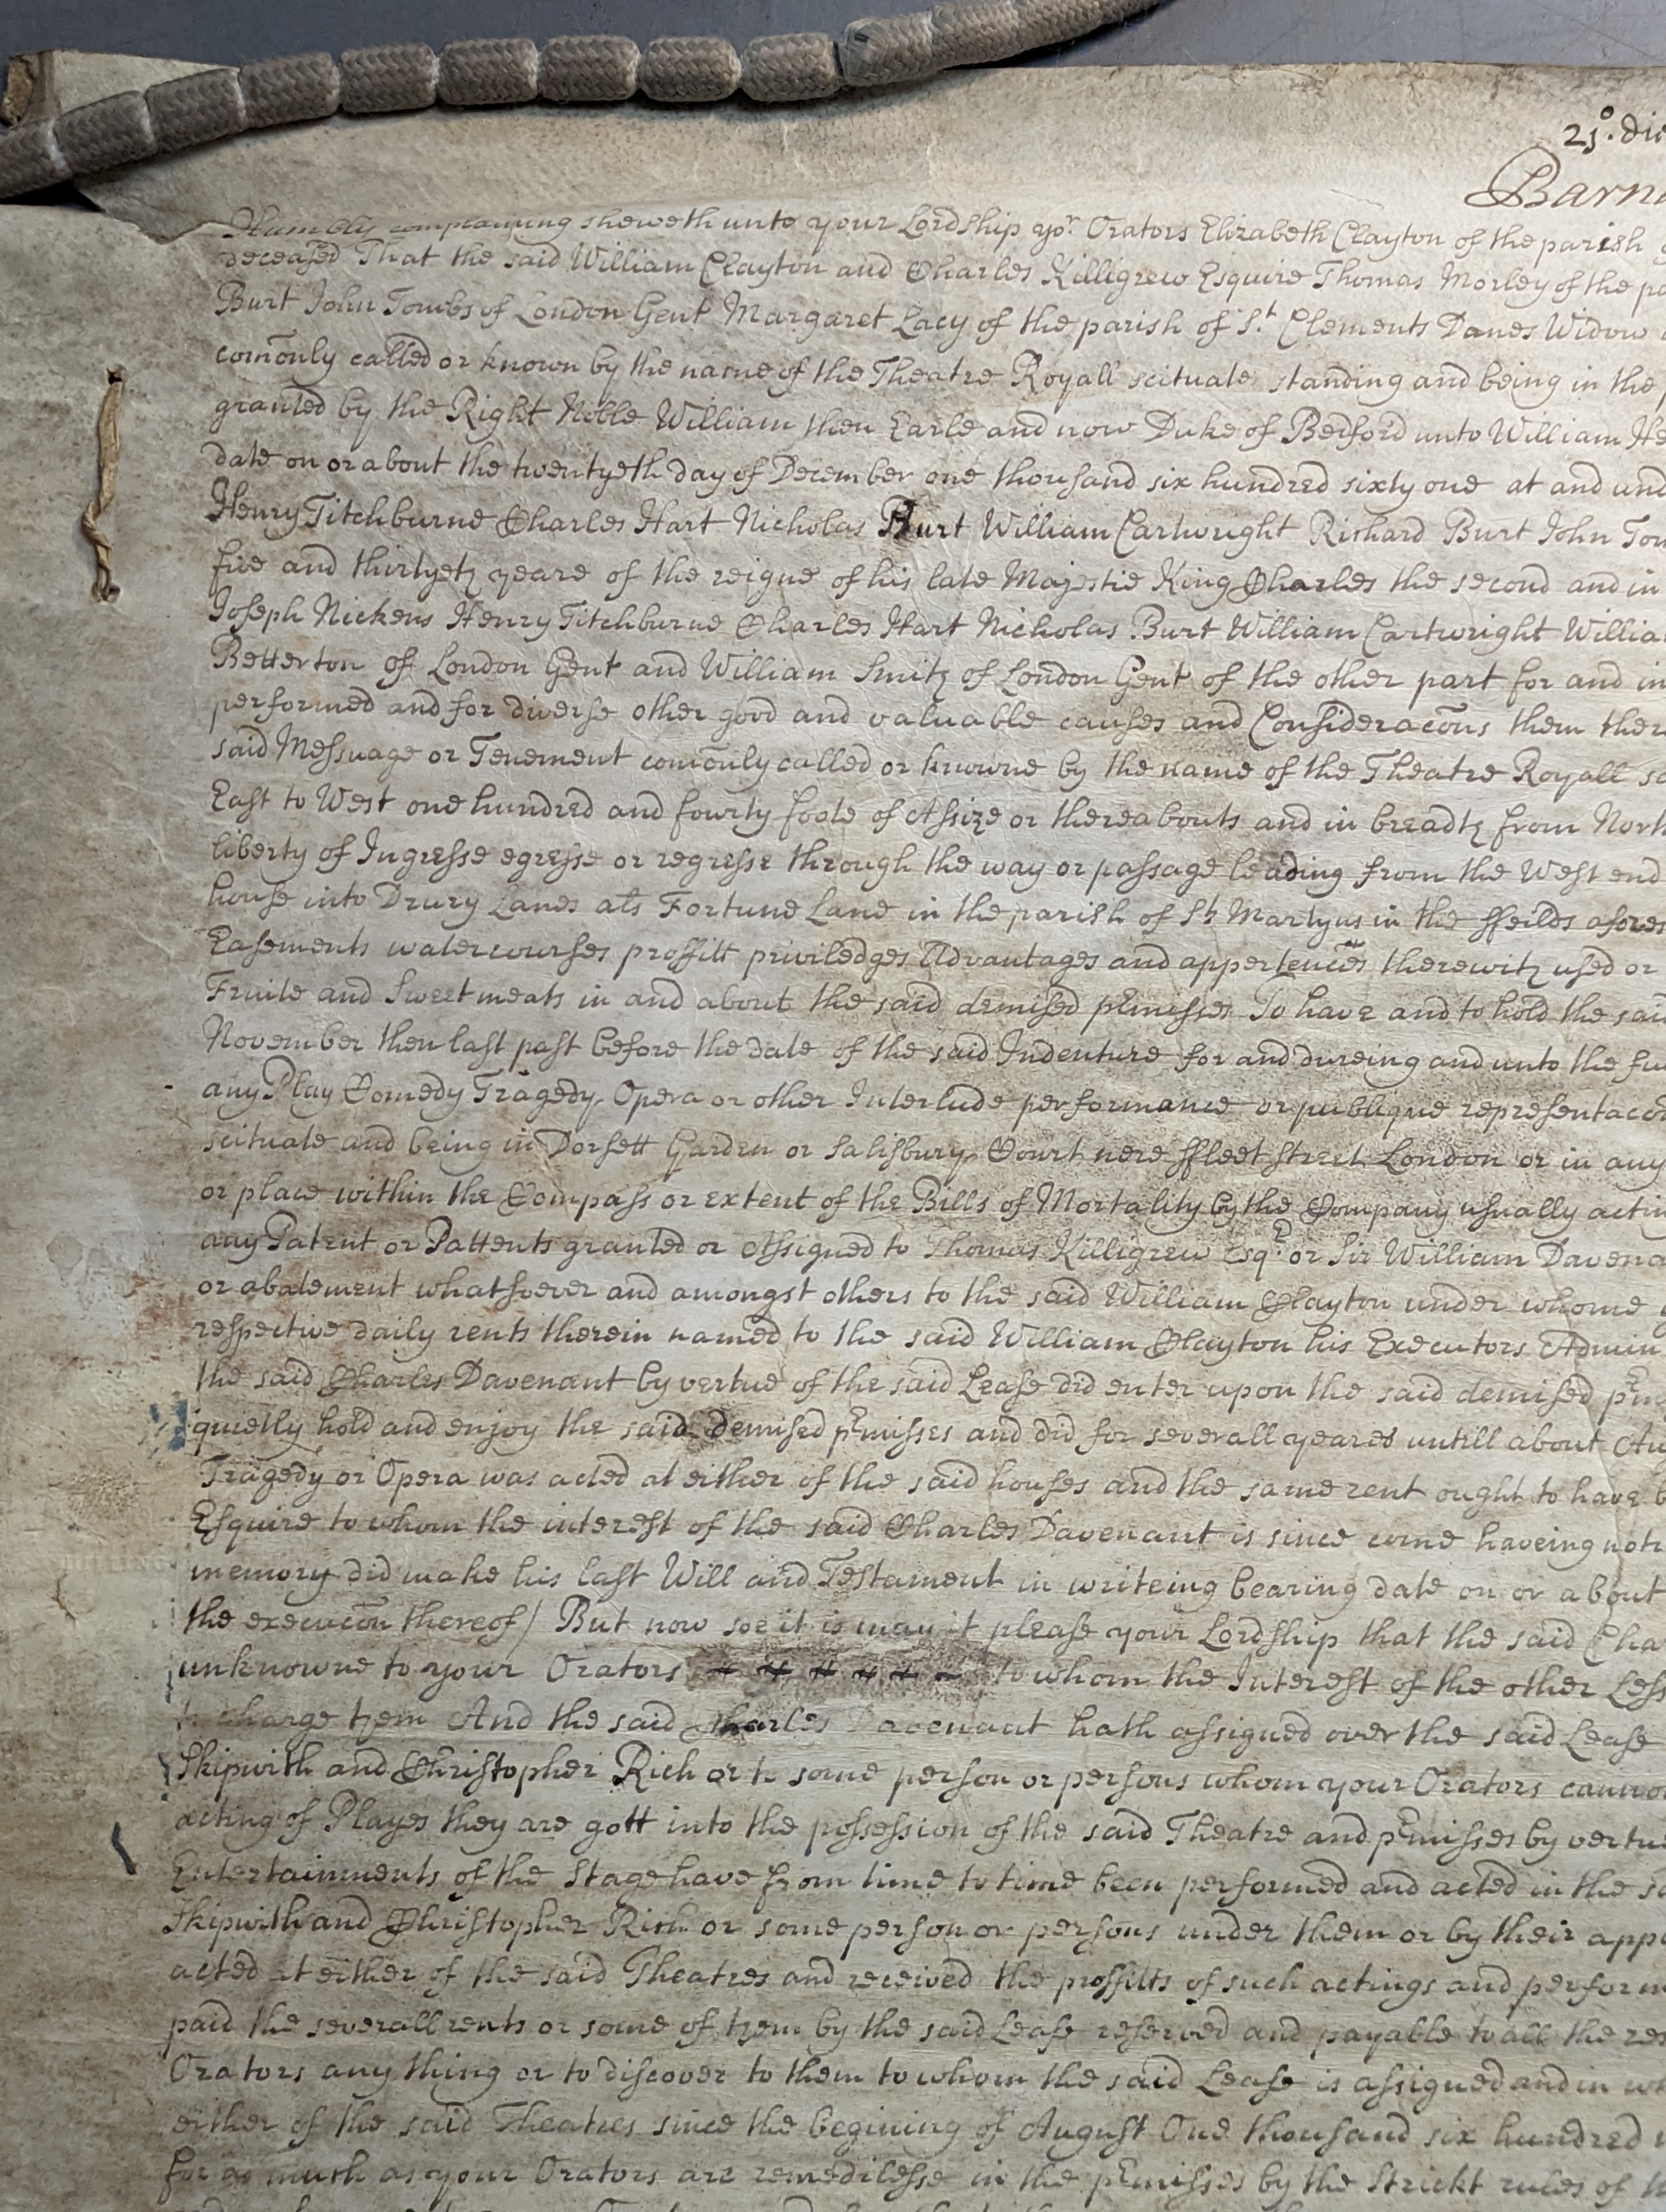 21o. die
Barn
Humbly complaining sheweth unto your Lordship yor. Orators Elizabeth Clayton of the parish
deceased That the said William Clayton and Charles Killigrew Esquire Thomas Morley of the pa
Burt John Tombs of London Gent Margaret Lacy of the parish of St Clements Danes Widow
com̄only called or known by the name of the Theatre Royall scituate standing and being in the
granted by the Right Noble William then Earle and now Duke of Bedford unto William He
date on or about the twentyeth day of December one thousand six hundred sixty one at and und
Henry Titchburne Charles Hart Nicholas Burt William Cartwright Richard Burt John Tom
five and thirtyeth yeare of the reigne of his late Majestie King Charles the second and in
Joseph Nickens Henry Titchburne Charles Hart Nicholas Burt William Cartwright Willia
Betterton of London Gent and William Smith of London Gent of the other part for and in
performed and for diverse other good and valuable causes and Consideracōns them ther
said Messuage or Tenement com̄only called or knowne by the name of the Theatre Royall sc
East to West one hundred and fourty foote of Assize or thereabouts and in breadth from North
liberty of Ingresse egresse or regresse through the way or passage leading from the West end
house into Drury Lane als Fortune Lane in the parish of St Martyns in the ffeilds afores
Easements watercourses proffitt priviledges Advantages and appertenc̄es therewith used or
Fruite and Sweetmeats in and about the said demised p̄misses To have and to hold the said
November then last past before the date of the said Indenture for and dureing and unto the fu
any Play Comedy Tragedy Opera or other Interlude performance or publique representacōn
scituate and being in Dorsett Garden or Salisbury Court nere ffleet Street London or in any
or place within the Compass or extent of the Bills of Mortality by the Company usually actin
any Patent or Pattents granted or Assigned to Thomas Killigrew Esqr. or Sir William Davena
or abatement whatsoever and amongst others to the said William Clayton under whome y
respective daily rents therein named to the said William Clayton his Executors Admin
the said Charles Davenant by vertue of the said Lease did enter upon the said demised p̄mi
quietly hold and enjoy the said demised p̄misses and did for severall yeares untill about Au
Tragedy or Opera was acted at either of the said houses and the same rent ought to have b
Esquire to whom the interest of the said Charles Davenant is since come haveing not
memory did make his last Will and Testament in writeing bearing date on or about
the execucōn thereof) But now soe it is may it please your Lordship that the said Cha
unknowne to your Orators to whom the Interest of the other Less
to charge them And the said Charles Davenant hath assigned over the said Lease
Skipwith and Christopher Rich or to some person or persons whom your Orators canno
acting of Playes they are gott into the possession of the said Theatre and p̄misses by vertu
Entertainments of the Stage have from time to time been performed and acted in the s
Skipwith and Christopher Rich or some person or persons under them or by their app
acted at either of the said Theatres and received the proffitts of such actings and perform
paid the severall rents or some of them by the said Lease reserved and payable to all the res
Orators any thing or to discover to them to whom the said Lease is assigned and in wh
either of the said Theatres since the begining of August One thousand six hundred
for as much as your Orators are remedilesse in the p̄misses by the Strickt rules of